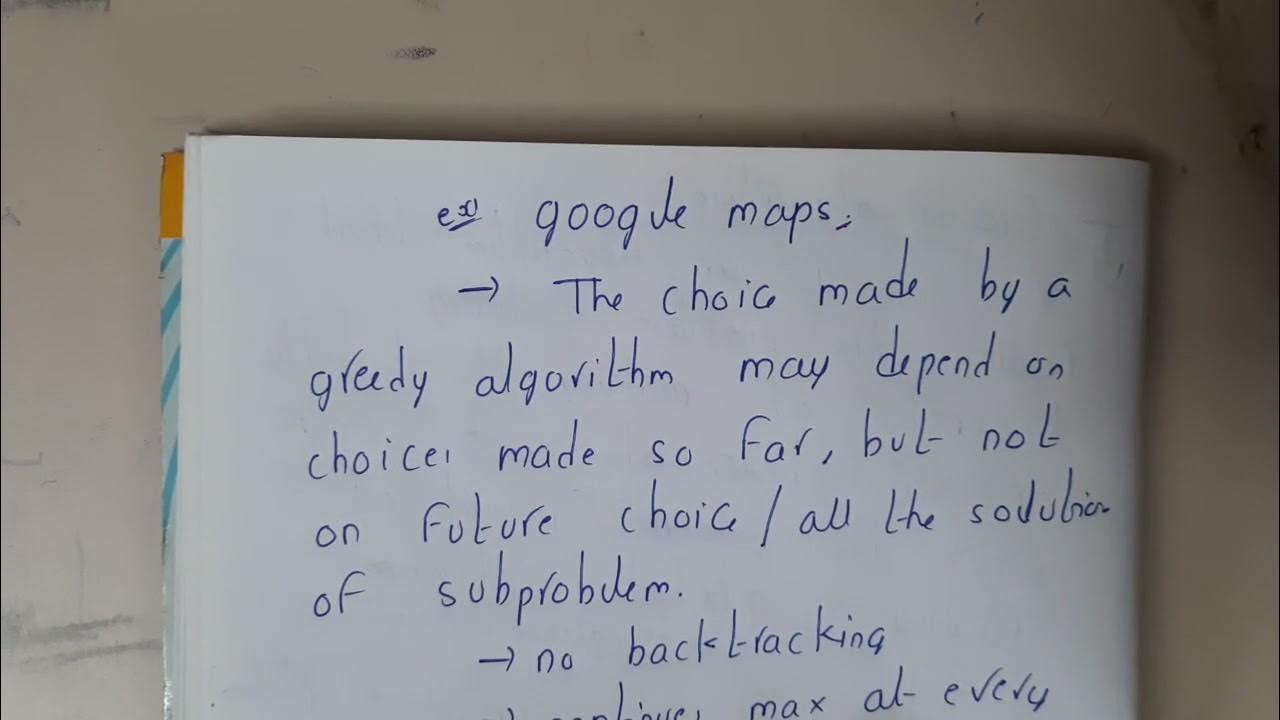 ex) google maps.
→ The choice made by a
greedy algorithm may depend on
choices made so far, but not
on future choice / all the solution
of subproblem.
→ no backtracking
→ max at every